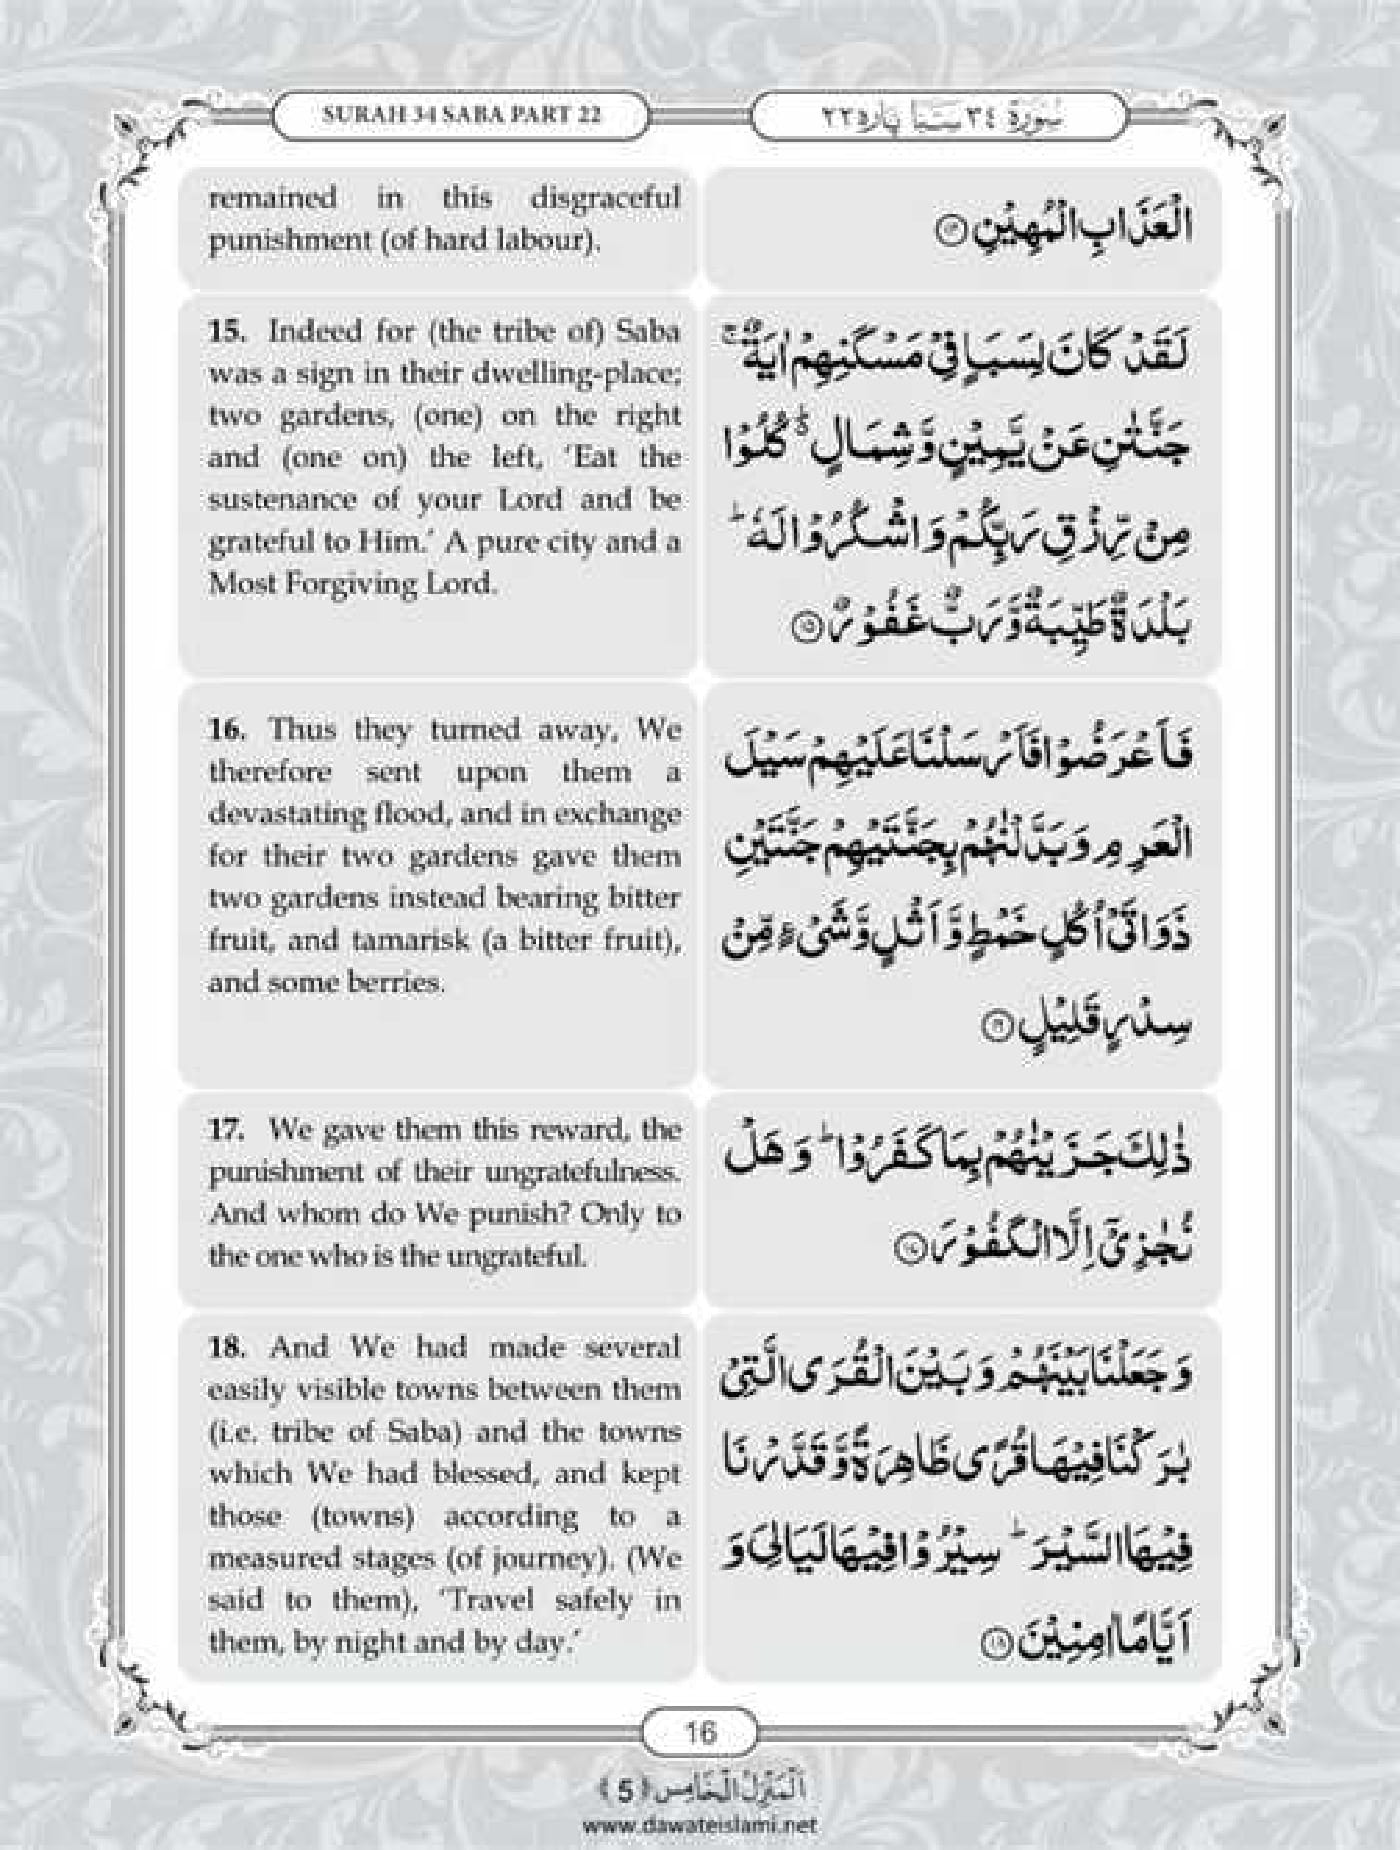 SURAH 34 SABA PART 22
سُوْرَةُ ٣٤ سَبَا پاره ٢٢
remained in this disgraceful
punishment (of hard labour).
الْعَذَابِ الْمُهِيْنِ ﴿۱۴﴾
15. Indeed for (the tribe of) Saba
was a sign in their dwelling-place;
two gardens, (one) on the right
and (one on) the left, ‘Eat the
sustenance of your Lord and be
grateful to Him.’ A pure city and a
Most Forgiving Lord.
لَقَدْ كَانَ لِسَبَاٍ فِیْ مَسْكَنِهِمْ اٰیَةٌ ۚ
جَنَّتٰنِ عَنْ یَّمِیْنٍ وَّ شِمَالٍ ؕ۬ كُلُوْا
مِنْ رِّزْقِ رَبِّكُمْ وَ اشْكُرُوْا لَهٗ ؕ
بَلْدَةٌ طَیِّبَةٌ وَّ رَبٌّ غَفُوْرٌ ﴿۱۵﴾
16. Thus they turned away, We
therefore sent upon them a
devastating flood, and in exchange
for their two gardens gave them
two gardens instead bearing bitter
fruit, and tamarisk (a bitter fruit),
and some berries.
فَاَعْرَضُوْا فَاَرْسَلْنَا عَلَیْهِمْ سَیْلَ
الْعَرِمِ وَ بَدَّلْنٰهُمْ بِجَنَّتَیْهِمْ جَنَّتَیْنِ
ذَوَاتَیْ اُكُلٍ خَمْطٍ وَّ اَثْلٍ وَّ شَیْءٍ مِّنْ
سِدْرٍ قَلِیْلٍ ﴿۱۶﴾
17. We gave them this reward, the
punishment of their ungratefulness.
And whom do We punish? Only to
the one who is the ungrateful.
ذٰلِكَ جَزَیْنٰهُمْ بِمَا كَفَرُوْا ؕ وَ هَلْ
نُجٰزِیْۤ اِلَّا الْكَفُوْرَ ﴿۱۷﴾
18. And We had made several
easily visible towns between them
(i.e. tribe of Saba) and the towns
which We had blessed, and kept
those (towns) according to a
measured stages (of journey). (We
said to them), ‘Travel safely in
them, by night and by day.’
وَ جَعَلْنَا بَیْنَهُمْ وَ بَیْنَ الْقُرَى الَّتِیْ
بٰرَكْنَا فِیْهَا قُرًى ظَاهِرَةً وَّ قَدَّرْنَا
فِیْهَا السَّیْرَ ؕ سِیْرُوْا فِیْهَا لَیَالِیَ وَ
اَیَّامًا اٰمِنِیْنَ ﴿۱۸﴾
16
اَلْمَنْزِلُ الْخَامِس ﴿5﴾
www.dawateislami.net